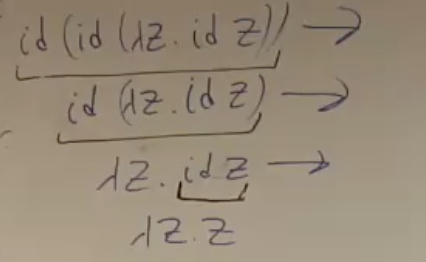 id (id (λz. id z)) →
id (λz. id z) →
λz. id z →
λz. z